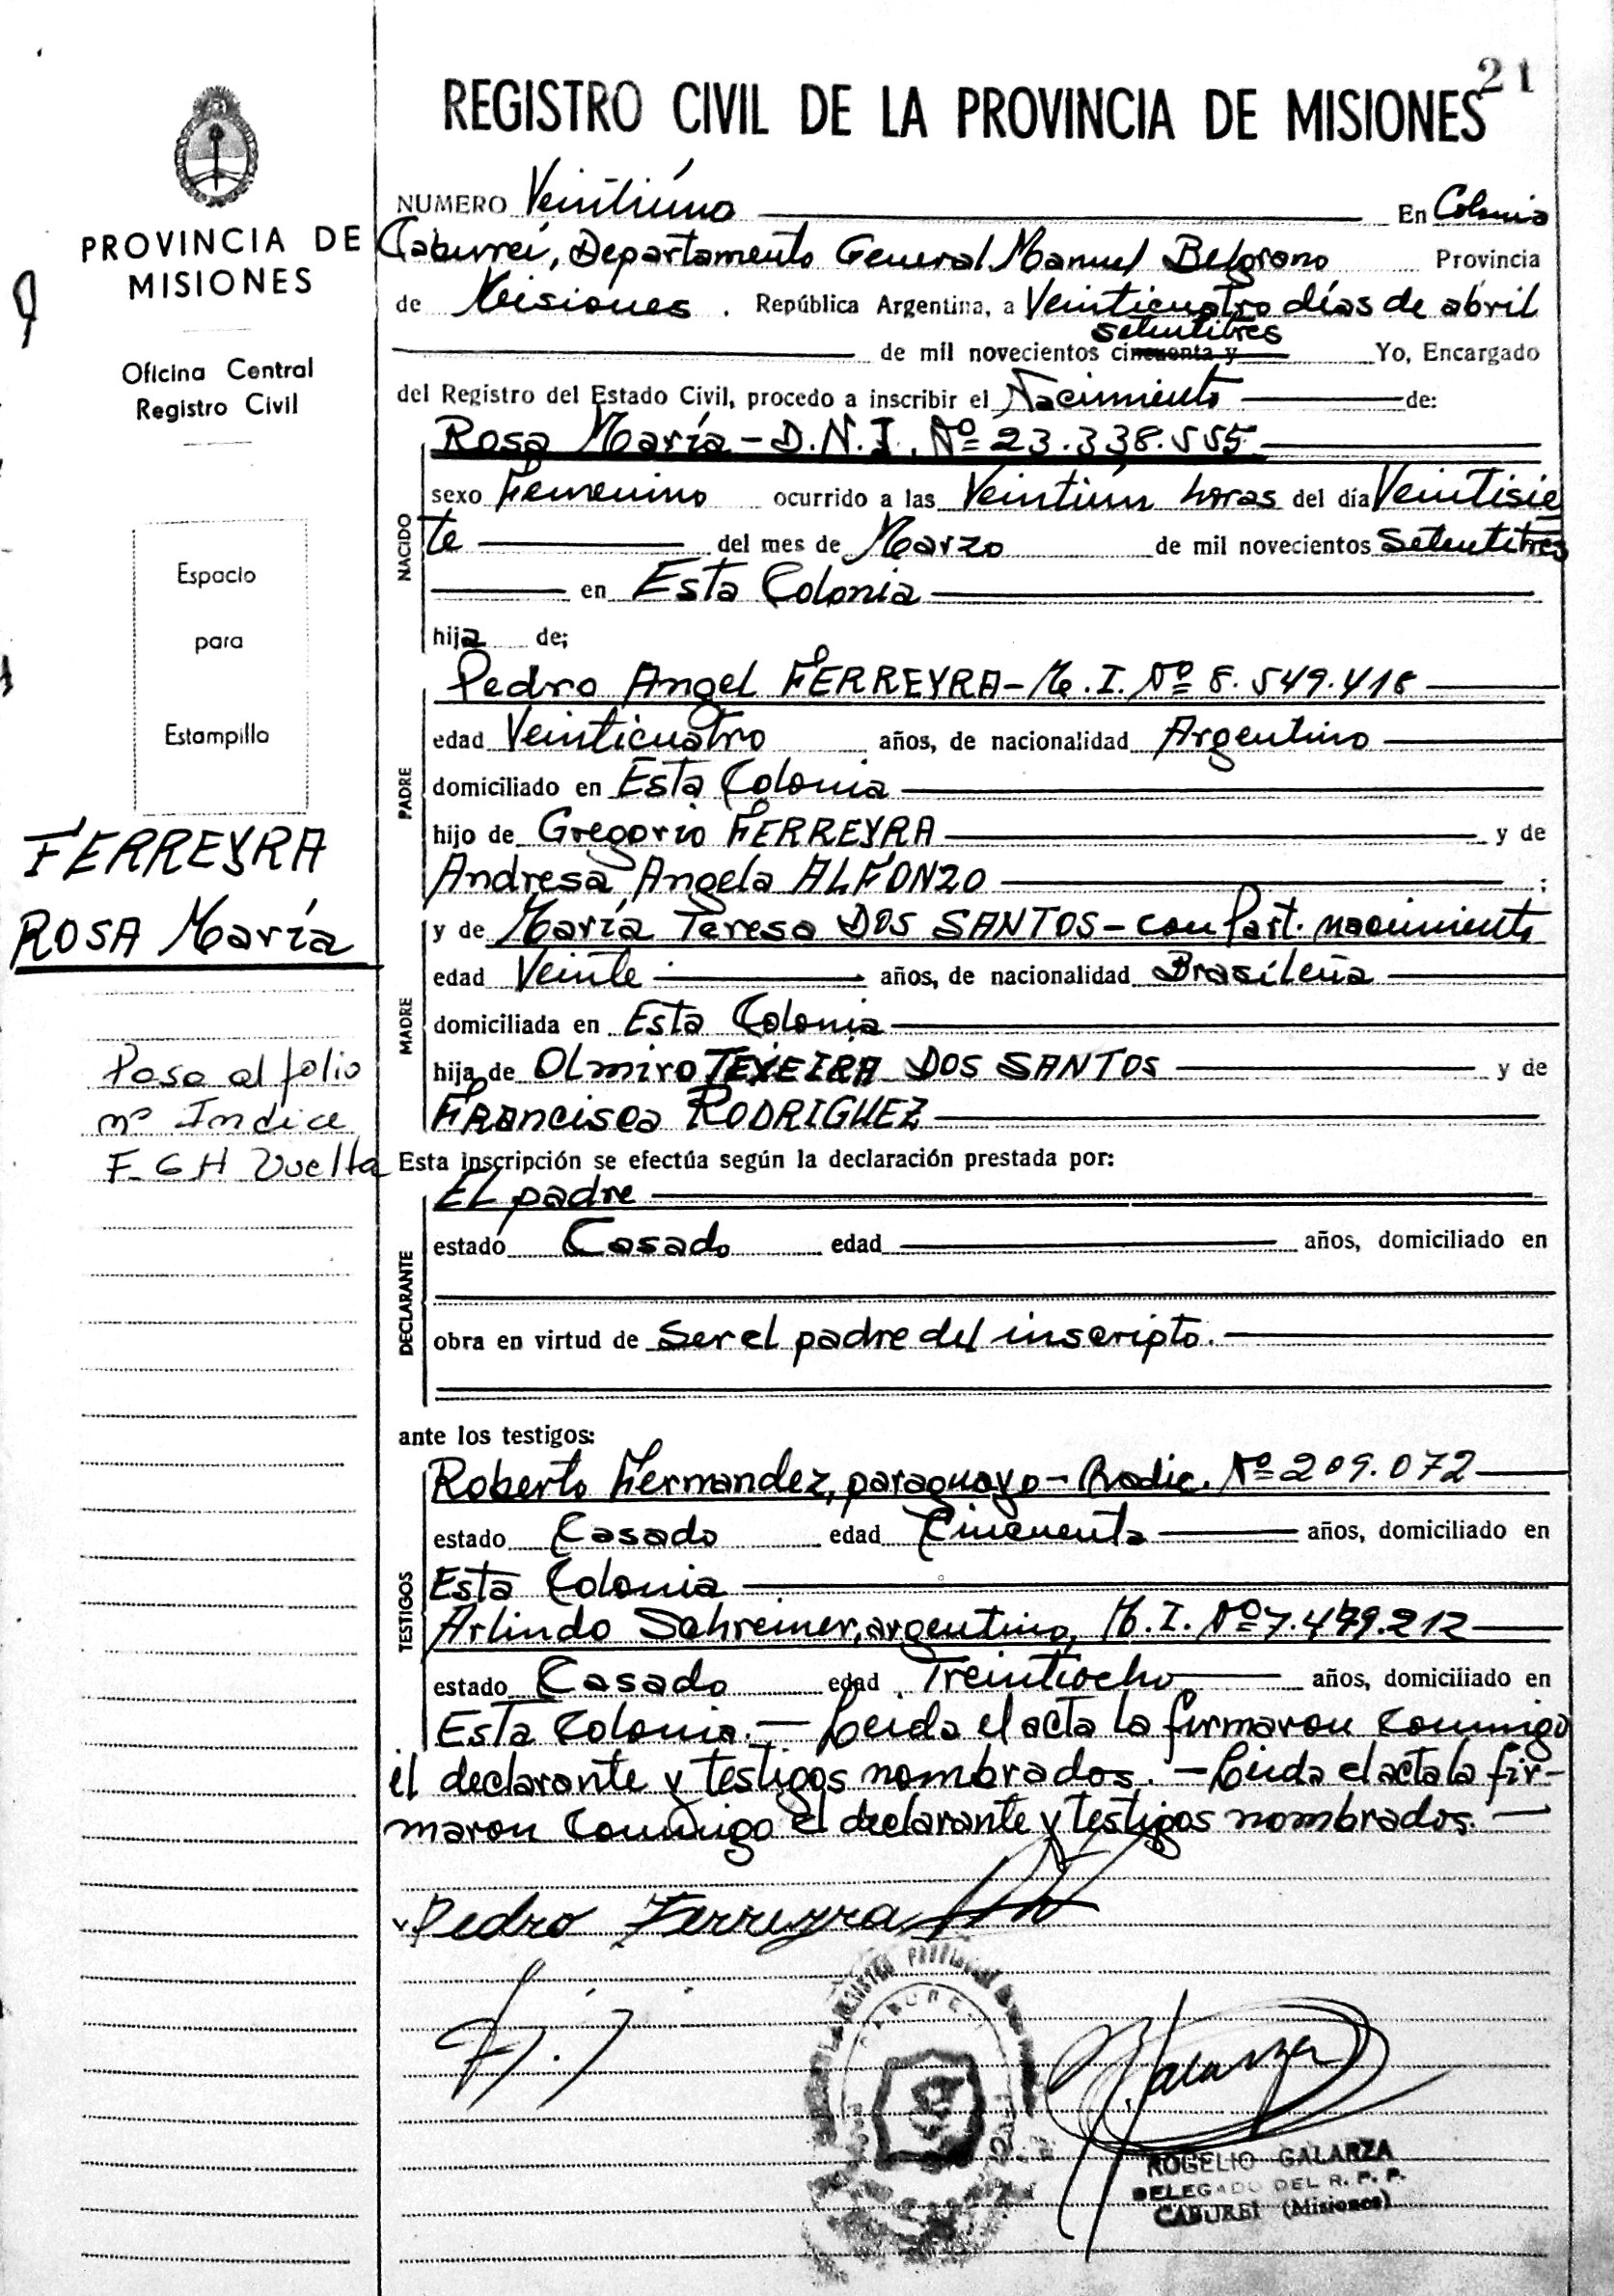 21
REGISTRO CIVIL DE LA PROVINCIA DE MISIONES
PROVINCIA DE
MISIONES
Oficina Central
Registro Civil
Espacio
para
Estampilla
FERREYRA
ROSA María
Pasa al folio
nº Indice
F-G H Vuelta
NUMERO Veintiúno En Colonia
Caburreí, Departamento General Manuel Belgrano Provincia
de Misiones. República Argentina, a Veinticuatro días de abril
setentitres
de mil novecientos cincuenta y Yo, Encargado
del Registro del Estado Civil, procedo a inscribir el Nacimiento de:
NACIDO
Rosa María - D.N.I. Nº 23.338.555
sexo Femenino ocurrido a las Veintiún horas del día Veintisie
te del mes de Marzo de mil novecientos Setentitres
en Esta Colonia
hija de;
PADRE
Pedro Angel FERREYRA - M.I. Nº 8.549.418
edad Veinticuatro años, de nacionalidad Argentino
domiciliado en Esta Colonia
hijo de Gregorio FERREYRA y de
Andresa Angela ALFONZO ;
MADRE
y de María Teresa DOS SANTOS - con Part. nacimiento
edad Veinte años, de nacionalidad Brasileña
domiciliada en Esta Colonia
hija de Olmiro TEXEIRA DOS SANTOS y de
Francisca RODRIGUEZ
Esta inscripción se efectúa según la declaración prestada por:
DECLARANTE
El padre
estado Casado edad años, domiciliado en
obra en virtud de Ser el padre del inscripto.
ante los testigos:
TESTIGOS
Roberto Fernandez, paraguayo - Radic. Nº 209.072
estado Casado edad Cincuenta años, domiciliado en
Esta Colonia
Arlindo Schreiner, argentino, M.I. Nº 7.479.212
estado Casado edad Treintiocho años, domiciliado en
Esta Colonia. - Leída el acta la firmaron conmigo
el declarante y testigos nombrados. - Leída el acta la fir-
maron conmigo el declarante y testigos nombrados. -
Pedro Ferreyra
R. Galarza
ROGELIO GALARZA
DELEGADO DEL R. P. P.
CABUREI (Misiones)